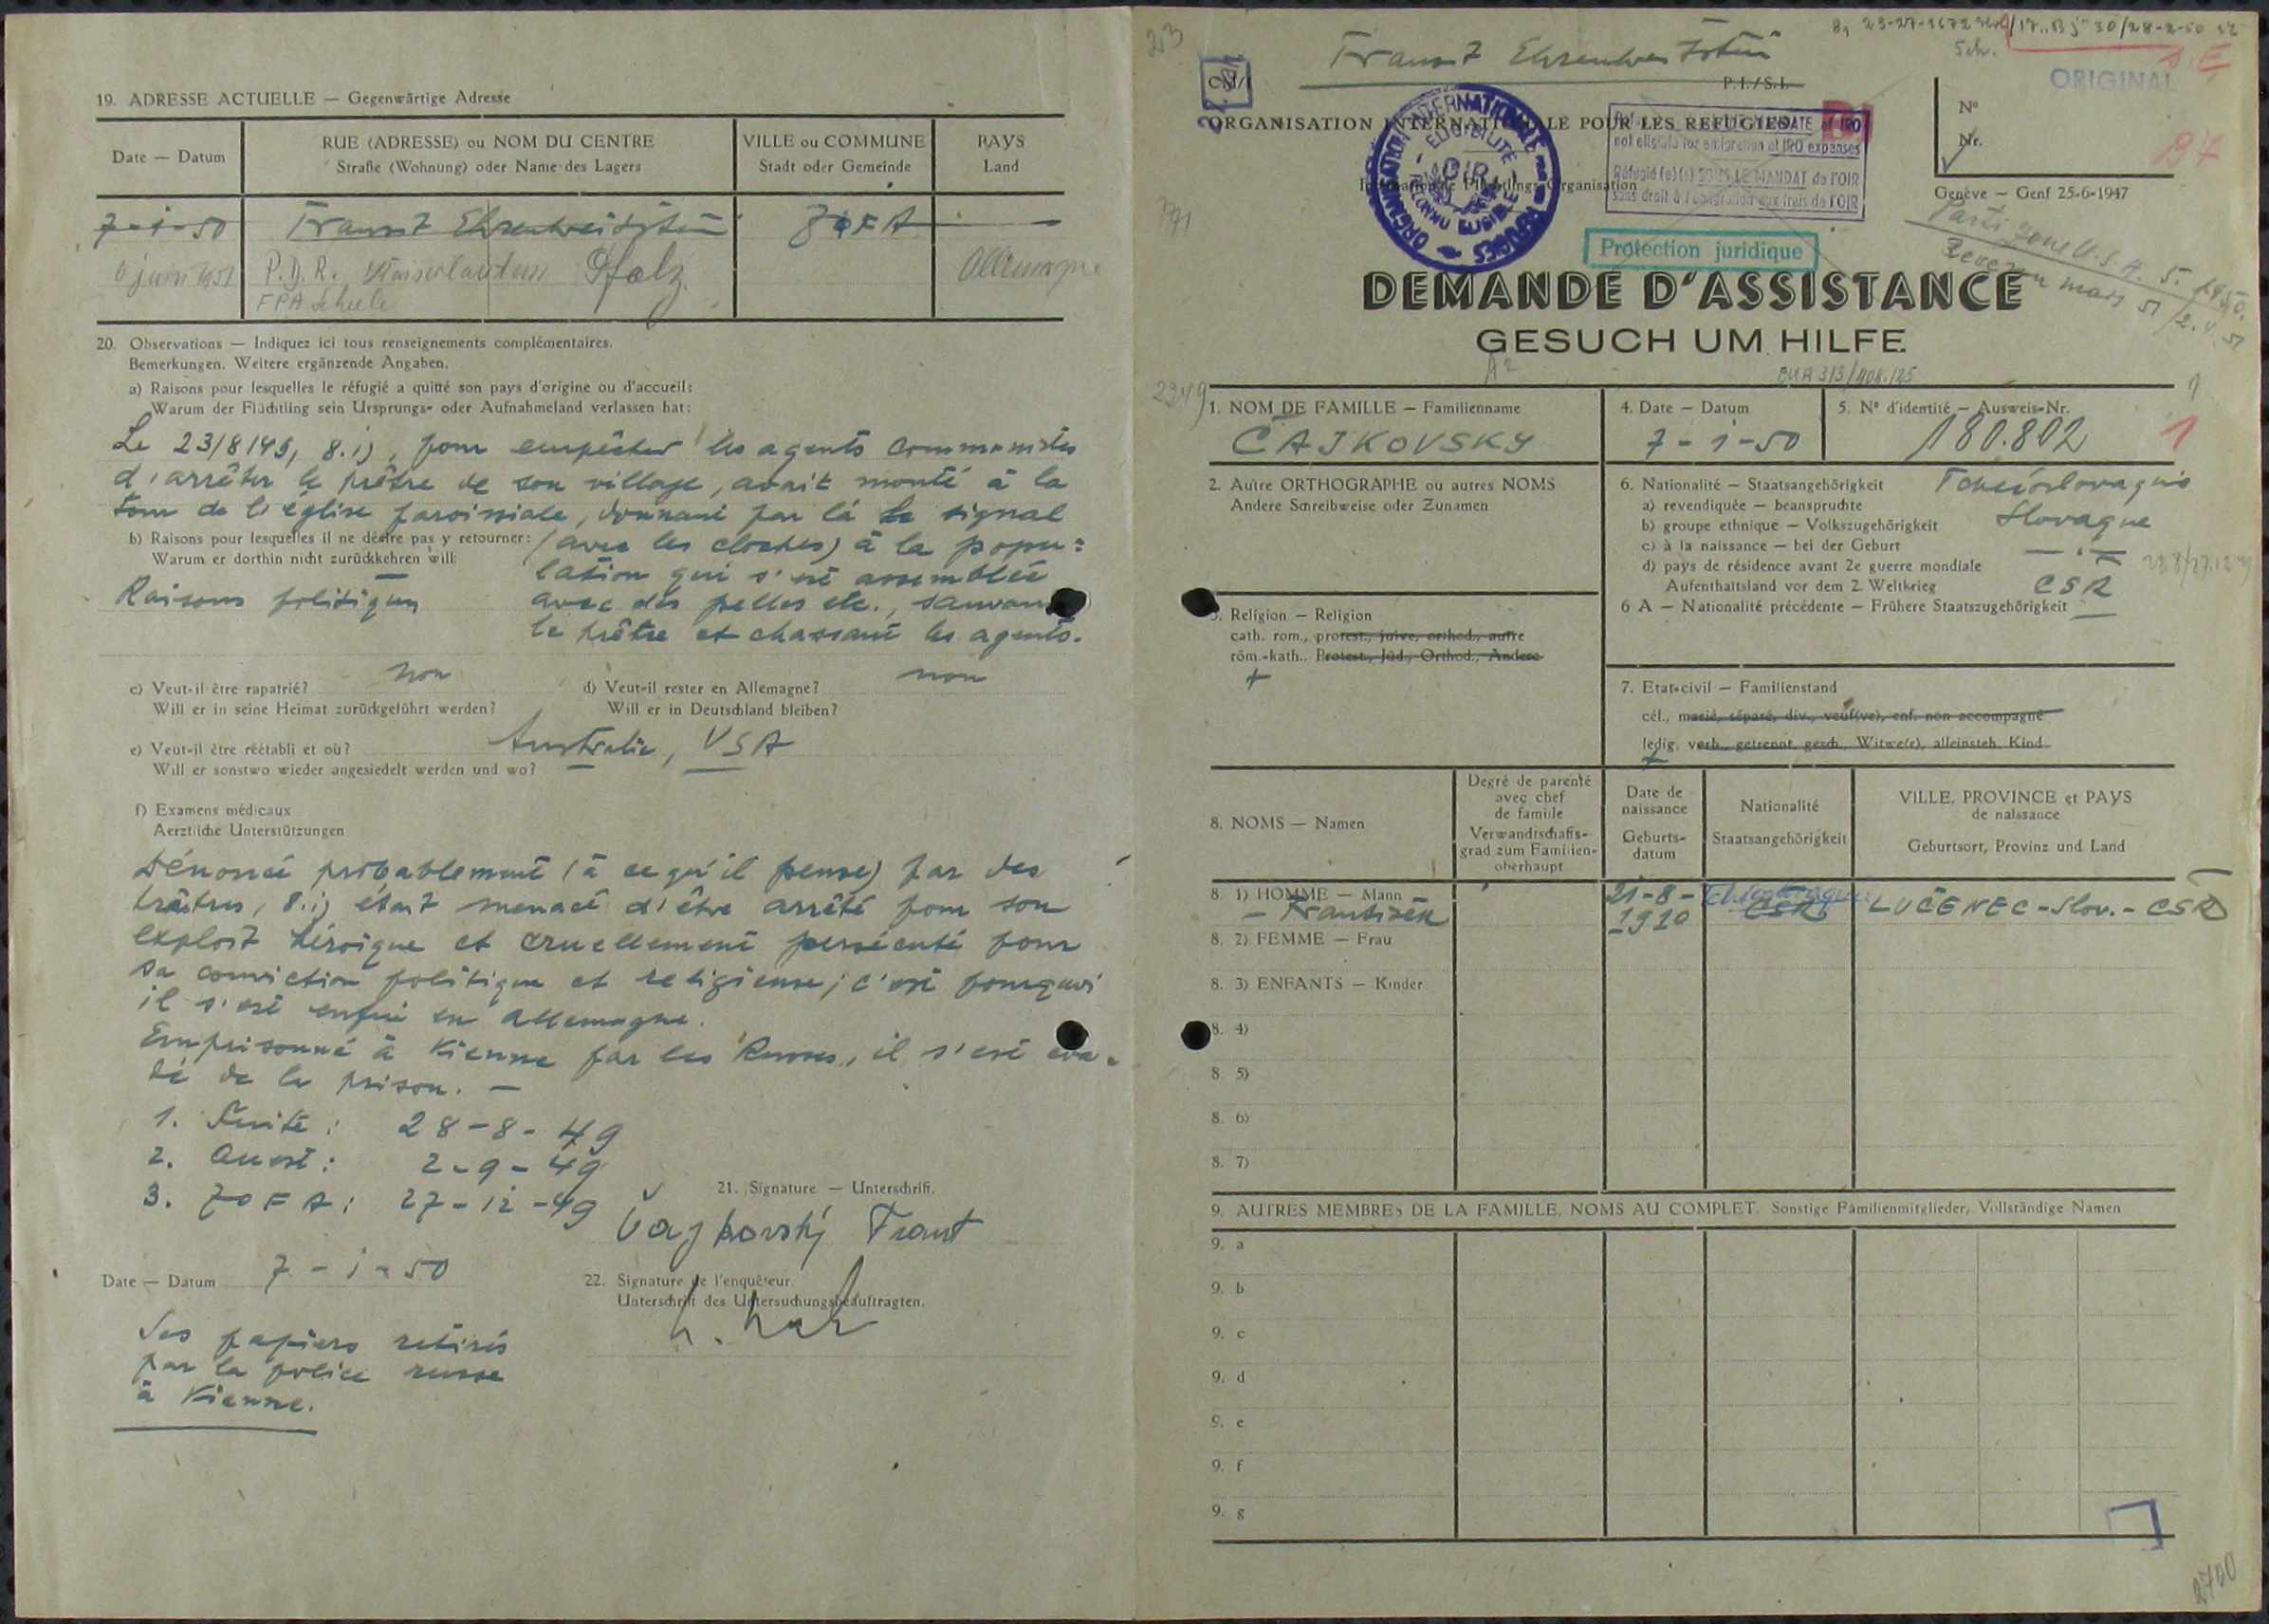 19. ADRESSE ACTUELLE — Gegenwärtige Adresse
Date — Datum
RUE (ADRESSE) ou NOM DU CENTRE
Straße (Wohnung) oder Name des Lagers
VILLE ou COMMUNE
Stadt oder Gemeinde
PAYS
Land
7-1-50 Transit ZOFA —
6 juin 1951 P.D.R. Kaiserlautern Pfalz Allemagne
FPA Scheele
20. Observations — Indiquez ici tous renseignements complémentaires.
Bemerkungen. Weitere ergänzende Angaben.
a) Raisons pour lesquelles le réfugié a quitté son pays d'origine ou d'accueil:
Warum der Flüchtling sein Ursprungs- oder Aufnahmeland verlassen hat:
Le 23/8/49, 8.1), pour empêcher les agents communistes
d'arrêter le prêtre de son village, avait monté à la
tour de l'église paroissiale, donnant par là le signal
b) Raisons pour lesquelles il ne désire pas y retourner:
Warum er dorthin nicht zurückkehren will:
(avec les cloches) à la popu=
lation qui s'est assemblée
avec des pelles etc., sauvant
le prêtre et chassant les agents.
Raisons politiques
c) Veut-il être rapatrié? non
Will er in seine Heimat zurückgeführt werden?
d) Veut-il rester en Allemagne? non
Will er in Deutschland bleiben?
e) Veut-il être réétabli et où? Australie, USA
Will er sonstwo wieder angesiedelt werden und wo?
f) Examens médicaux
Aerztliche Unterstützungen
Dénoncé probablement (à ce qu'il pense) par des
traîtres, 8.1) était menacé d'être arrêté pour son
exploit héroique et cruellement persécuté pour
sa conviction politique et religieuse; c'est pourquoi
il s'est enfui en Allemagne.
Emprisonné à Vienne par les Russes, il s'est éva=
dé de la prison. —
1. Fuite: 28-8-49
2. Ouest: 2-9-49
3. ZOFA: 27-12-49
21. Signature — Unterschrift.
Čajkovský Frant
Date — Datum 7-1-50
22. Signature de l'enquêteur.
Unterschrift des Untersuchungsbeauftragten.
Ses papiers retirés
par la police russe
à Vienne.
23
Transit
P.I./S.I.
ORIGINAL
ORGANISATION INTERNATIONALE POUR LES REFUGIES
Internationale Flüchtlings-Organisation
ORGANISATION INTERNATIONALE
ELIGIBILITE
OIR
RECONNU ELIGIBLE
not eligible for emigration at IRO expenses
Réfugié (e) (s) SOUS LE MANDAT de l'OIR
sans droit à l'émigration aux frais de l'OIR
Nº
Nr.
Genève — Genf 25-6-1947
Protection juridique
DEMANDE D'ASSISTANCE
GESUCH UM HILFE
2349
1. NOM DE FAMILLE — Familienname
ČAJKOVSKY
4. Date — Datum
7-1-50
5. Nº d'identité — Ausweis-Nr.
180.802
1
2. Autre ORTHOGRAPHE ou autres NOMS
Andere Schreibweise oder Zunamen
6. Nationalité — Staatsangehörigkeit
a) revendiquée — beanspruchte
b) groupe ethnique — Volkszugehörigkeit Slovaque
c) à la naissance — bei der Geburt
d) pays de résidence avant 2e guerre mondiale
Aufenthaltsland vor dem 2. Weltkrieg CSR
6 A — Nationalité précédente — Frühere Staatszugehörigkeit —
3. Religion — Religion
cath. rom., protest., juive, orthod., autre
röm.-kath., Protest., Jüd., Orthod., Andere
7. Etat-civil — Familienstand
cél., marié, séparé, div., veuf(ve), enf. non accompagné
ledig, verh., getrennt, gesch., Witwe(r), alleinsteh. Kind
8. NOMS — Namen
Degré de parenté
avec chef
de famille
Verwandtschafts-
grad zum Familien-
oberhaupt
Date de
naissance
Geburts-
datum
Nationalité
Staatsangehörigkeit
VILLE, PROVINCE et PAYS
de naissance
Geburtsort, Provinz und Land
8. 1) HOMME — Mann
— František
21-8-
-1910
CSR
LUČENEC - Slov. - CSR
8. 2) FEMME — Frau
8. 3) ENFANTS — Kinder
8. 4)
8. 5)
8. 6)
8. 7)
9. AUTRES MEMBRES DE LA FAMILLE, NOMS AU COMPLET. Sonstige Familienmitglieder, Vollständige Namen
9. a
9. b
9. c
9. d
9. e
9. f
9. g
2700